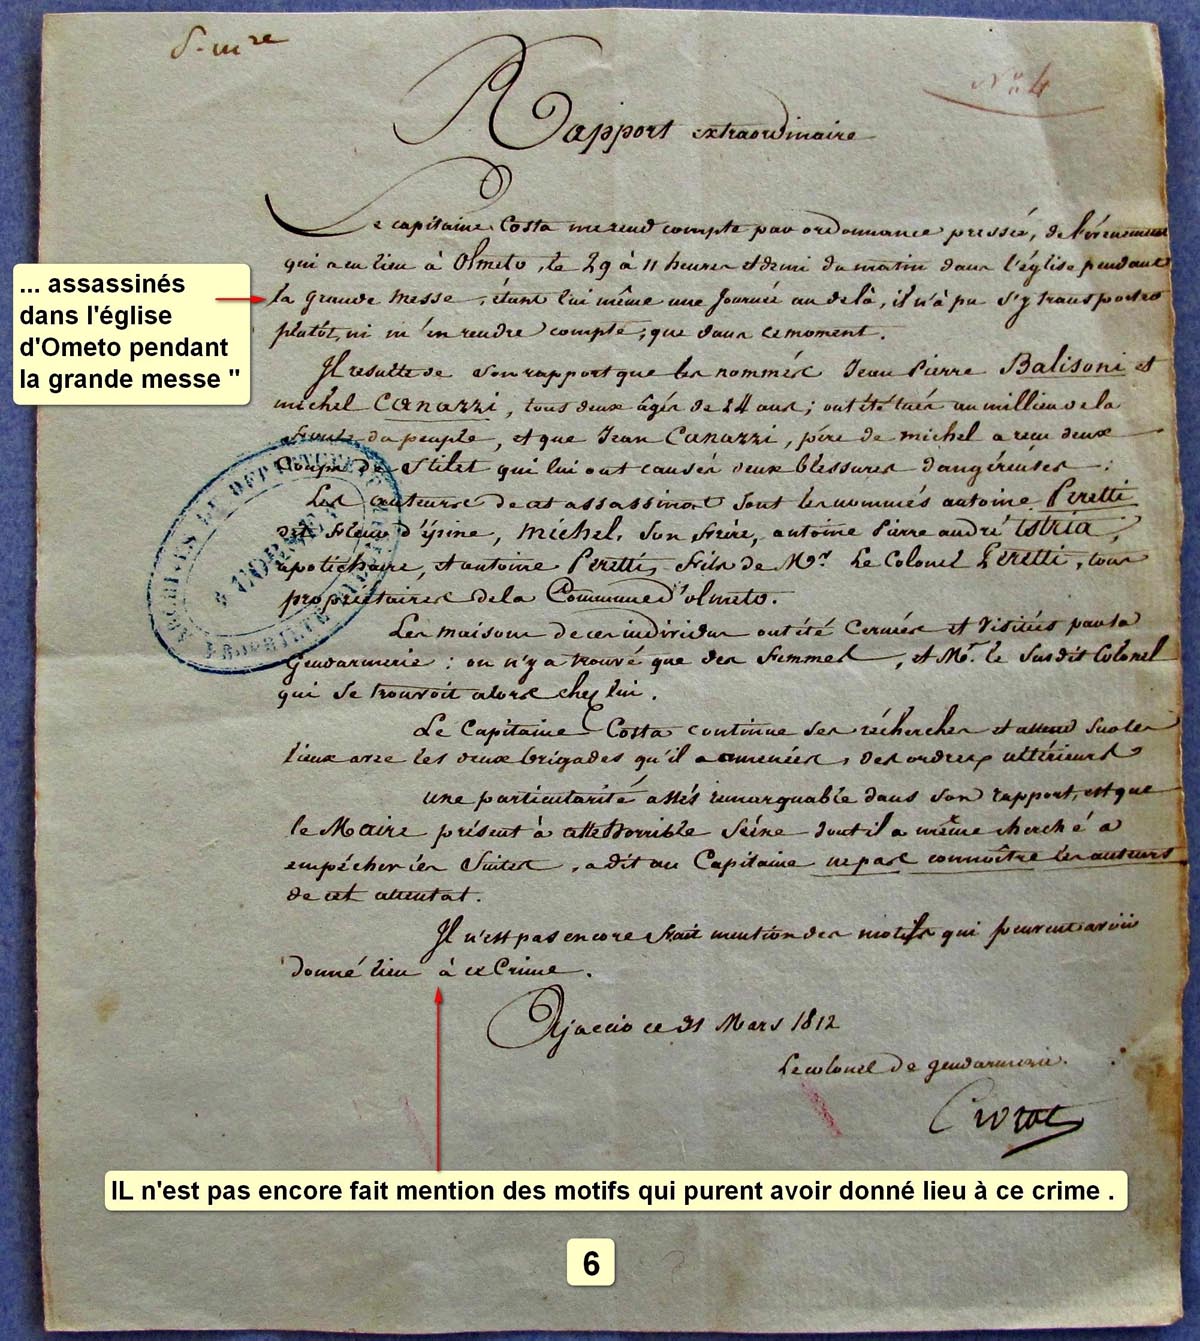 N° 4
Rapport extraordinaire
Le capitaine Costa me rend compte par ordonnance pressée, de l'évenement
qui a eu lieu à Olmeto, le 29 à 11 heures et demi du matin dans l'église pendant
la grande Messe, étant lui même une Journée au delà, il n'à pu s'y transporter
plutôt, ni m'en rendre compte, que dans ce moment.
Il resulte de Son rapport que les nommés Jean Pierre Balisoni et
michel Canazzi, tous deux âgés de 24 ans; ont été tués au millieu de la
foule du peuple, et que Jean Canazzi, père de michel a reçu deux
Coups de Stilet qui lui ont causés deux blessures dangéreuses:
Les auteurs de cet assassinat sont les nommés antoine Peretti
michel, Son frère, antoine Pierre andré istria,
apotichaire, et antoine Peretti, fils de Mr. Le Colonel Peretti, tous
propriétaires de la Commune d'olmeto.
Les maisons de ces individus ont été Cernées et Visitées par la
Gendarmerie; on n'y a trouvé que des femmes, et Mr. le Susdit Colonel
qui se trouvoit alors chez lui.
Le Capitaine Costa continue ses réchérches et attend sur les
lieux avec les deux brigades qu'il a amenées, des ordres ultérieurs
une particularité assés rémarquable dans son rapport, est que
le Maire présent à cette horrible Scéne dont il a même cherché a
empécher les Suites, a dit au Capitaine ne pas connoître les auteurs
de cet attentat.
Il n'est pas encore fait mention des motifs qui peuvent avoir
donné lieu à ce Crime.
Ajaccio ce 31 Mars 1812
Le colonel de gendarmerie.
... assassinés
dans l'église
d'Ometo pendant
la grande messe "
ARCHIVES DU DEPARTEMENT
CORSE
PROPRIETE
IL n'est pas encore fait mention des motifs qui purent avoir donné lieu à ce crime .
6